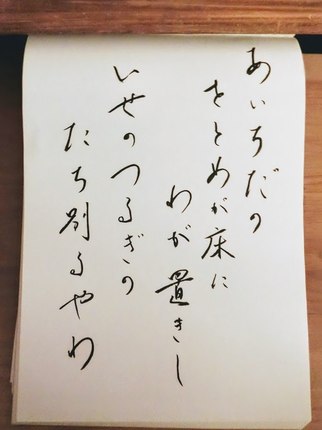 あいちだの
をとめが床に
わが置きし
いせのつるぎの
たち別るやわ